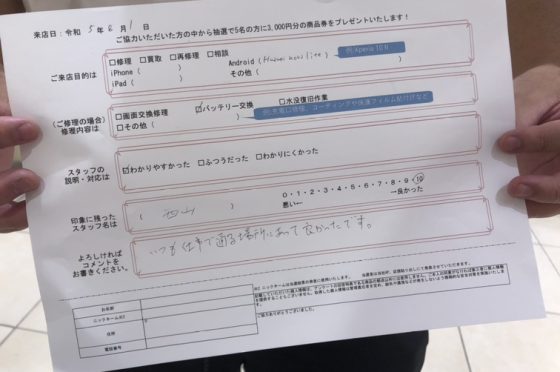 来店日：令和 5年 6月 1日
ご協力いただいた方の中から抽選で5名の方に3,000円分の商品券をプレゼントいたします！
ご来店目的は
□修理 □買取 □再修理 □相談
iPhone（ ） Android（Huawei nova lite） 例）Xperia 10Ⅱ
iPad（ ） その他（ ）
（ご修理の場合）
修理内容は
□画面交換修理 ☑バッテリー交換 □水没復旧作業
□その他（ ）
スタッフの
説明・対応は
☑わかりやすかった □ふつうだった □わかりにくかった
印象に残った
スタッフ名は
（ 西山 ）
0・1・2・3・4・5・6・7・8・9・10
悪い← →良かった
よろしければ
コメントを
お書きください。
いつも仕事で通る場所にあって良かったです。
お名前
ニックネーム※2
住所
〒
電話番号
ご協力ありがとうございました。